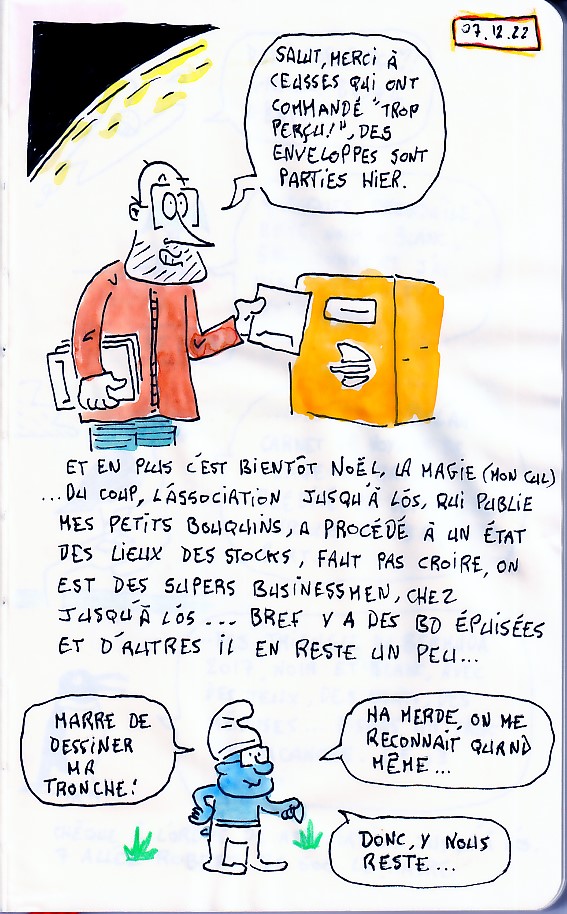 07.12.22
SALUT, MERCI À
CEUSSES QUI ONT
COMMANDÉ "TROP
PERÇU!", DES
ENVELOPPES SONT
PARTIES HIER.
ET EN PLUS C'EST BIENTÔT NOËL, LA MAGIE (MON CUL)
...DU COUP, L'ASSOCIATION JUSQU'À L'ÓS, QUI PUBLIE
MES PETITS BOUQUINS, A PROCÉDÉ À UN ÉTAT
DES LIEUX DES STOCKS, FAUT PAS CROIRE, ON
EST DES SUPERS BUSINESSMEN, CHEZ
JUSQU'À L'ÓS... BREF Y A DES BD ÉPUISÉES
ET D'AUTRES IL EN RESTE UN PEU...
MARRE DE
DESSINER
MA
TRONCHE!
HA MERDE, ON ME
RECONNAIT QUAND
MÊME...
DONC, Y NOUS
RESTE...